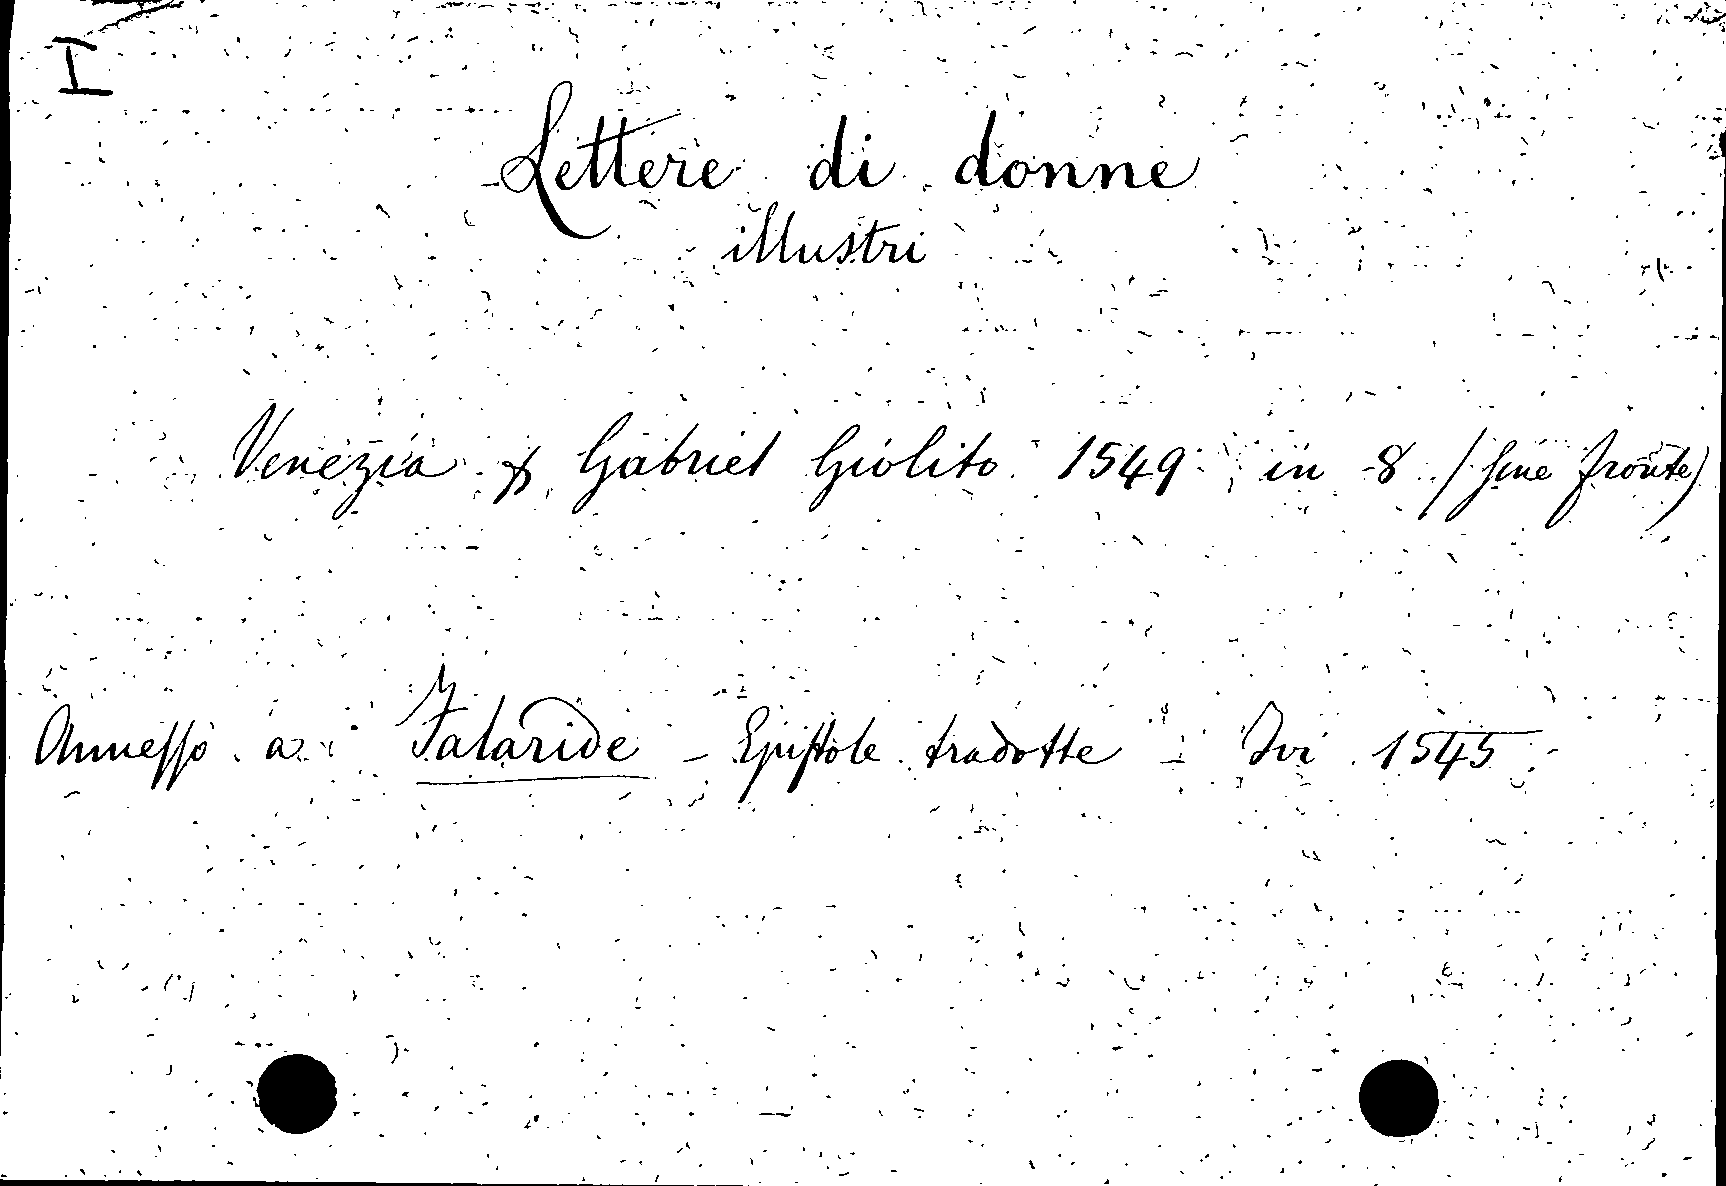 I
Lettere di donne
illustri
Venezia p Gabriel Giolito 1549 in 8 (sine fronte)
Annesso a Falaride - Epistole tradotte - Ivi 1545